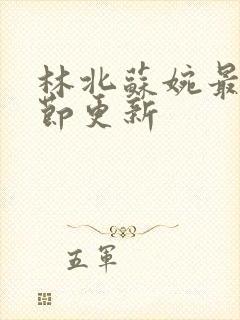 林北蘇婉最
節更新
五軍